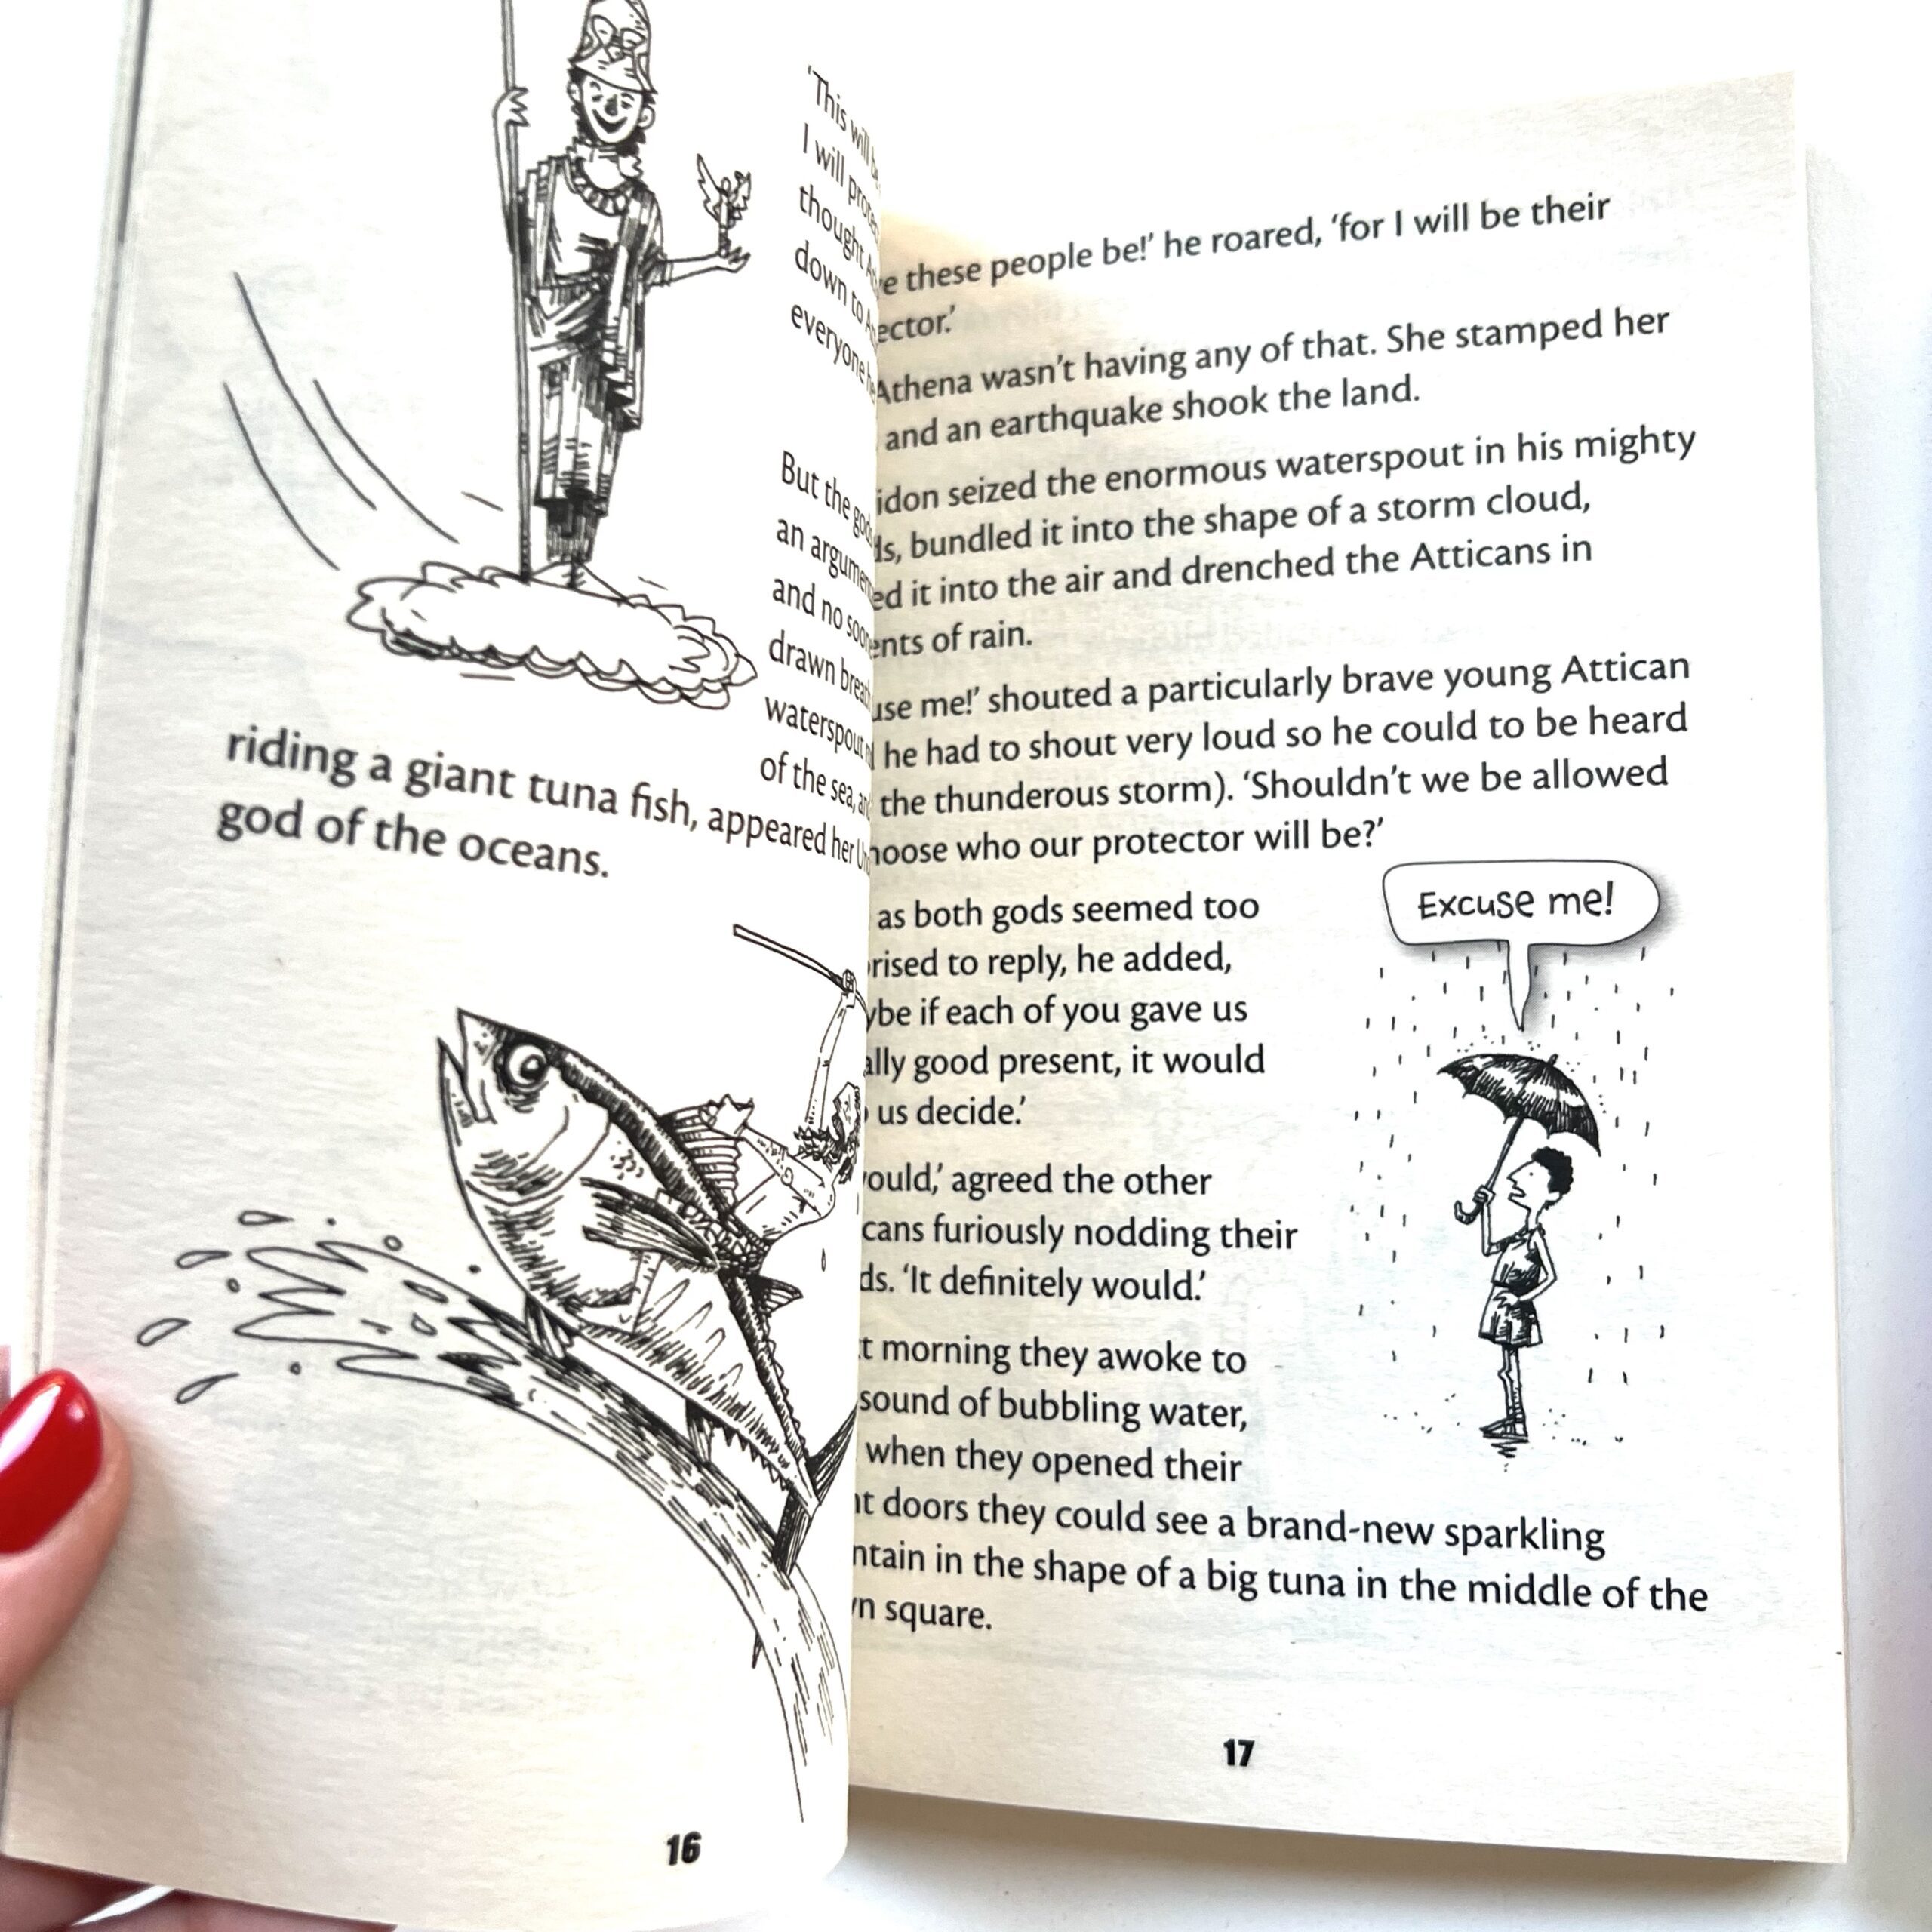 'This will be
I will
thought
down to
everyone
But the
an
and no
drawn
waterspout
of the sea,
riding a giant tuna fish, appeared her
god of the oceans.
16
these people be!' he roared, 'for I will be their
Athena wasn't having any of that. She stamped her
and an earthquake shook the land.
seized the enormous waterspout in his mighty
bundled it into the shape of a storm cloud,
it into the air and drenched the Atticans in
of rain.
me!' shouted a particularly brave young Attican
he had to shout very loud so he could to be heard
the thunderous storm). 'Shouldn't we be allowed
who our protector will be?'
Excuse me!
as both gods seemed too
to reply, he added,
if each of you gave us
good present, it would
us decide.'
agreed the other
furiously nodding their
'It definitely would.'
morning they awoke to
sound of bubbling water,
when they opened their
doors they could see a brand-new sparkling
in the shape of a big tuna in the middle of the
square.
17